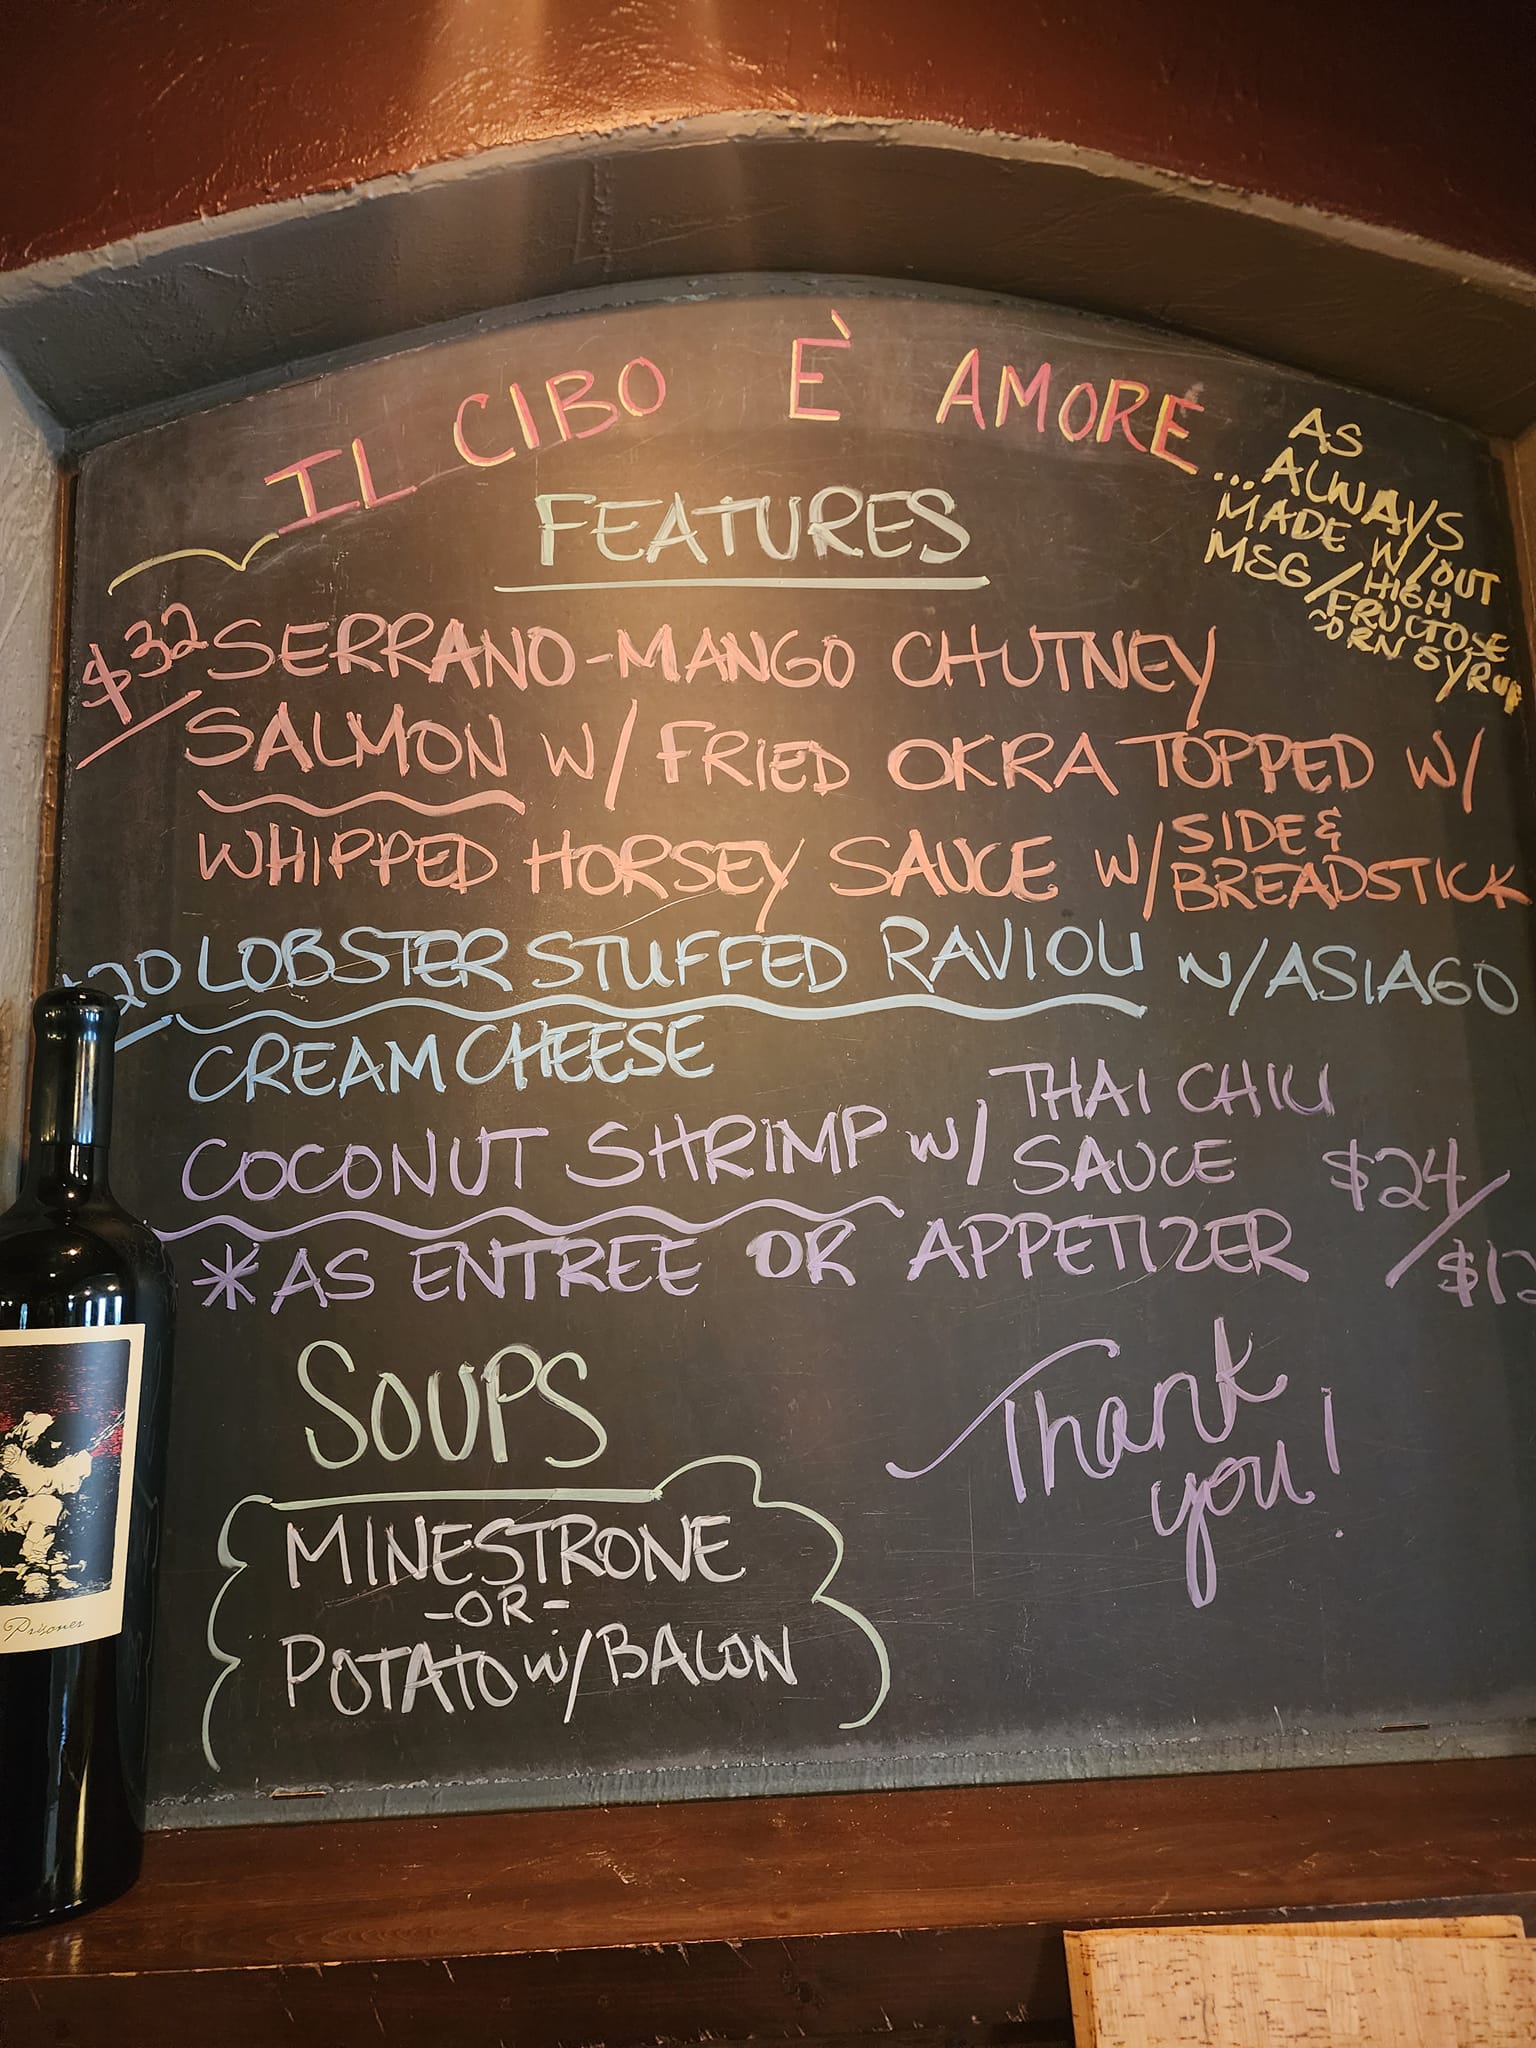 IL CIBO È AMORE
...AS
ALWAYS
MADE W/OUT
MSG/HIGH
FRUCTOSE
CORN SYRUP
FEATURES
$32 SERRANO-MANGO CHUTNEY
SALMON W/ FRIED OKRA TOPPED W/
WHIPPED HORSEY SAUCE W/ SIDE &
BREADSTICK
$20 LOBSTER STUFFED RAVIOLI W/ ASIAGO
CREAM CHEESE
COCONUT SHRIMP W/ THAI CHILI
SAUCE
*AS ENTREE OR APPETIZER $24/
$12
SOUPS
MINESTRONE
-OR-
POTATO W/ BACON
Thank
you!
Prisoner